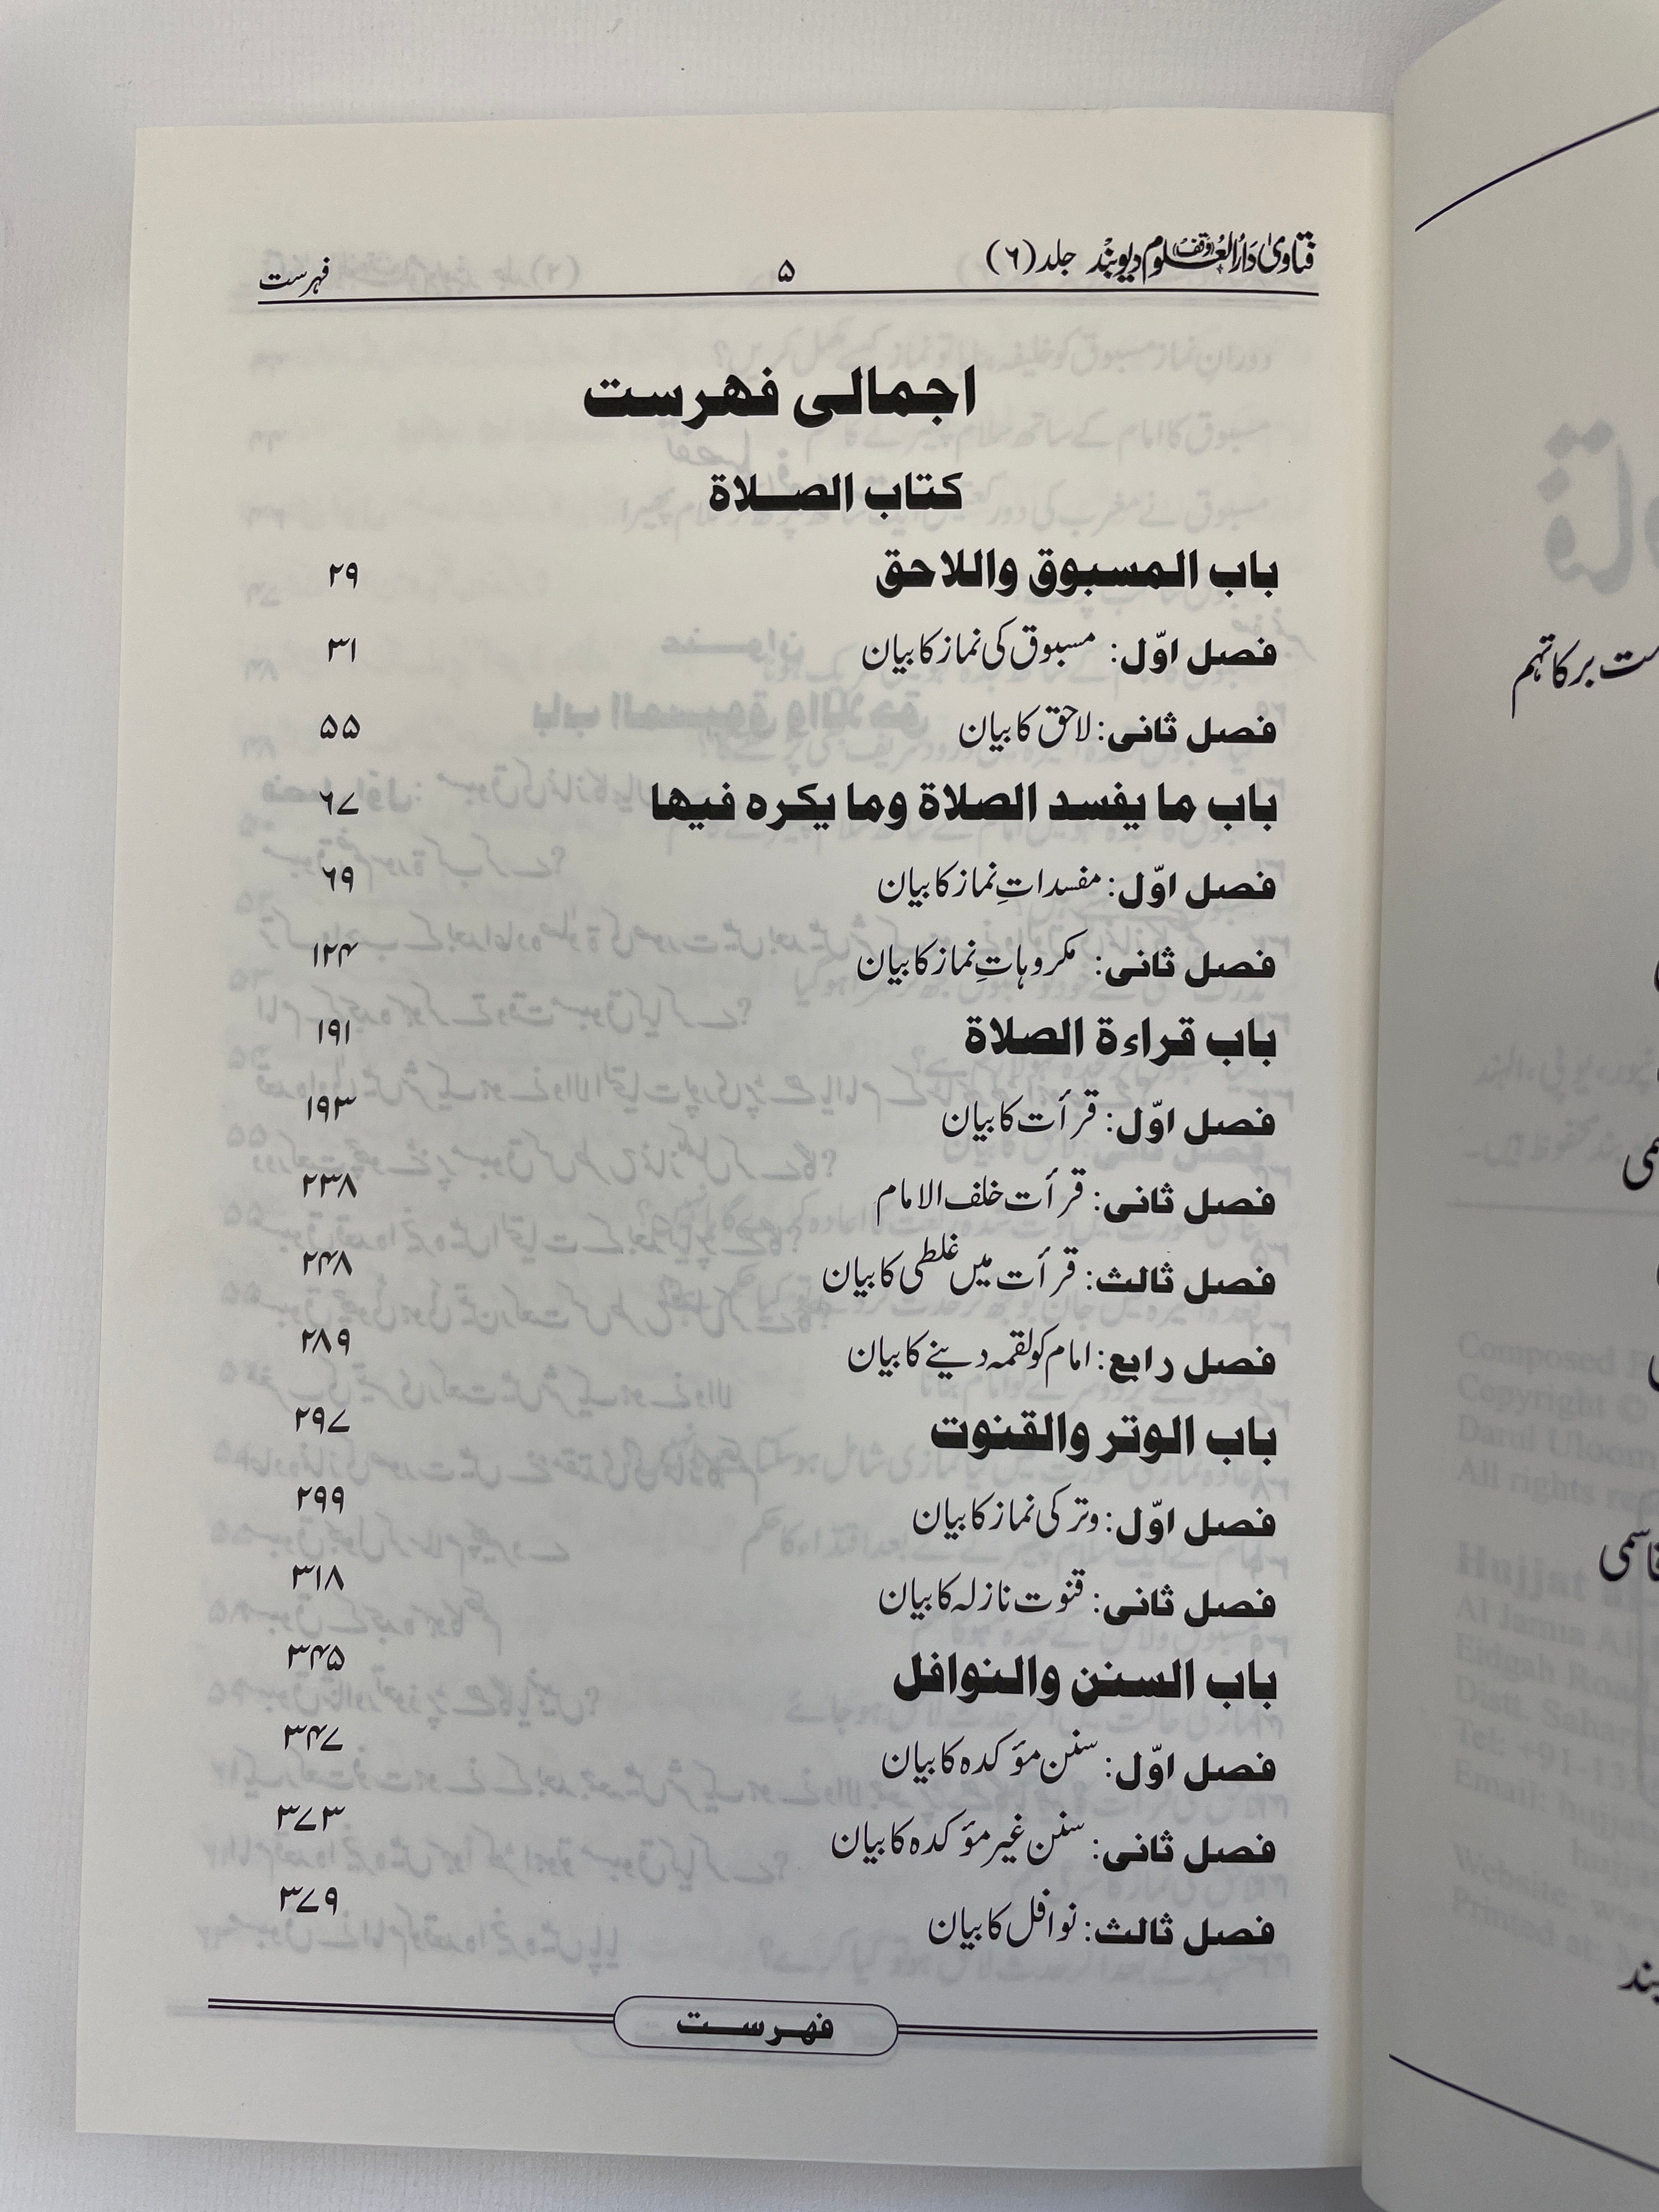 فتاویٰ دارالعلوم (وقف) دیوبند جلد (۶) ۵ فہرست
اجمالی فہرست
کتاب الصلاة
باب المسبوق واللاحق ۲۹
فصل اوّل: مسبوق کی نماز کا بیان ۳۱
فصل ثانی: لاحق کا بیان ۵۵
باب ما یفسد الصلاة وما یکره فیها ۶۷
فصل اوّل: مفسداتِ نماز کا بیان ۶۹
فصل ثانی: مکروہاتِ نماز کا بیان ۱۲۴
باب قراءة الصلاة ۱۹۱
فصل اوّل: قرأت کا بیان ۱۹۳
فصل ثانی: قرأت خلف الامام ۲۳۸
فصل ثالث: قرأت میں غلطی کا بیان ۲۴۸
فصل رابع: امام کو لقمہ دینے کا بیان ۲۸۹
باب الوتر والقنوت ۲۹۷
فصل اوّل: وتر کی نماز کا بیان ۲۹۹
فصل ثانی: قنوت نازلہ کا بیان ۳۱۸
باب السنن والنوافل ۳۴۵
فصل اوّل: سنن مؤکدہ کا بیان ۳۴۷
فصل ثانی: سنن غیر مؤکدہ کا بیان ۳۷۳
فصل ثالث: نوافل کا بیان ۳۷۹
فہرست
برکاتہم
Composed
Copyright ©
Darul Uloom
All rights
Hujjat
Eidgah Road
Email:
Website:
Printed at: